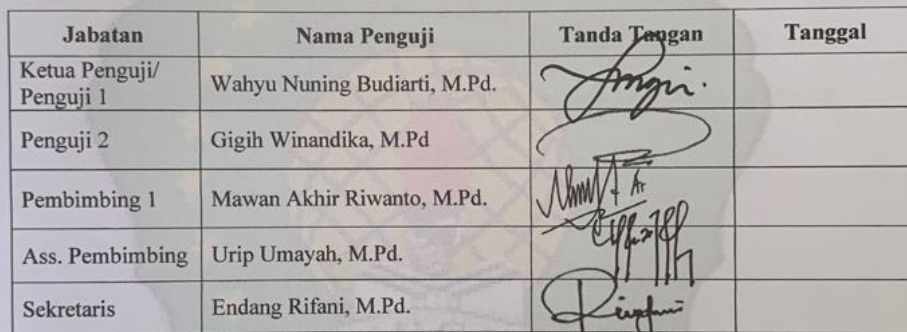 Jabatan Nama Penguji Tanda Tangan Tanggal
Ketua Penguji/
Penguji 1 Wahyu Nuning Budiarti, M.Pd.
Penguji 2 Gigih Winandika, M.Pd
Pembimbing 1 Mawan Akhir Riwanto, M.Pd.
Ass. Pembimbing Urip Umayah, M.Pd.
Sekretaris Endang Rifani, M.Pd.